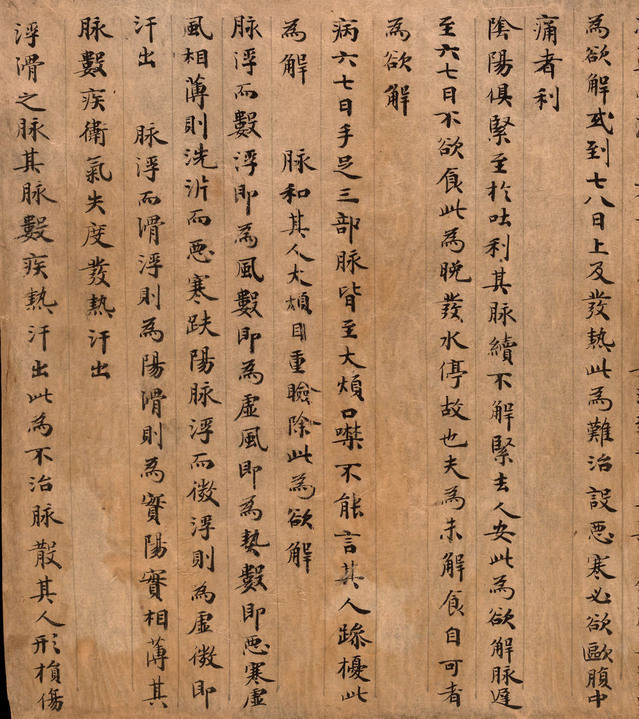 為欲解或到七八日上及發熱此為難治設惡寒必欲歐腹中
痛者利
陰陽俱緊至於吐利其脉續不解緊去人安此為欲解脉遲
至六七日不欲食此為晚發水停故也夫為未解食自可者
為欲解
病六七日手足三部脉皆至大煩口噤不能言其人躁擾此
為解　脉和其人大煩目重瞼除此為欲解
脉浮而數浮即為風數即為虛風即為熱數即惡寒虛
風相薄則洗泝而惡寒趺陽脉浮而微浮則為虛微即
汗出　脉浮而滑浮則為陽滑則為實陽實相薄其
脉數疾衛氣失度發熱汗出
浮滑之脉其脉數疾熱汗出此為不治脉散其人形損傷